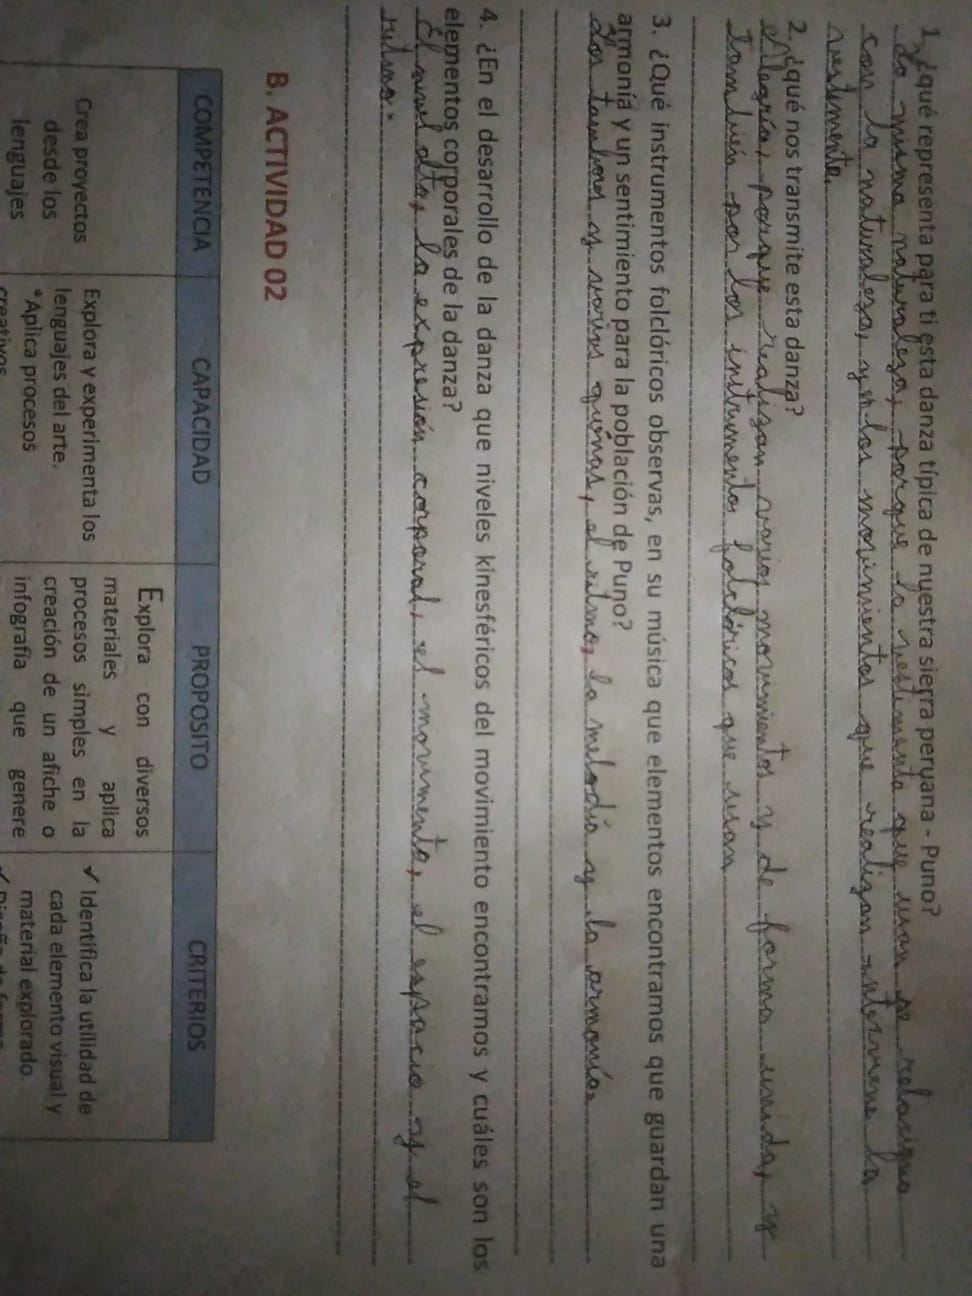 1. ¿qué representa para ti esta danza típica de nuestra sierra peruana - Puno?
La misma naturaleza, porque la vestimenta que usan se relaciona
con la naturaleza, y los movimientos que realizan interviene la
vestimenta.
2. ¿qué nos transmite esta danza?
Alegría, porque realizan varios movimientos y de forma unida, y
también por los instrumentos folclóricos que usan
3. ¿Qué instrumentos folclóricos observas, en su música que elementos encontramos que guardan una
armonía y un sentimiento para la población de Puno?
Los tambores y varias quenas, el ritmo, la melodía y la armonía.
4. ¿En el desarrollo de la danza que niveles kinesféricos del movimiento encontramos y cuáles son los
elementos corporales de la danza?
El nivel alto, la expresión corporal, el movimento, el espacio y el
ritmo.
B. ACTIVIDAD 02
COMPETENCIA CAPACIDAD PROPOSITO CRITERIOS
Crea proyectos
desde los
lenguajes
Explora y experimenta los
lenguajes del arte.
*Aplica procesos
creativos
Explora con diversos
materiales y aplica
procesos simples en la
creación de un afiche o
infografía que genere
✓ Identifica la utilidad de
cada elemento visual y
material explorado.